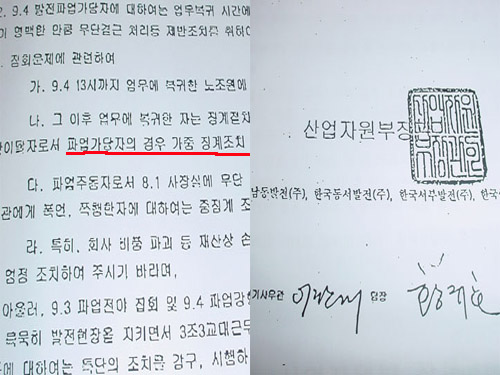 9.4 발전파업가담자에 대하여는 업무복귀 시간에
명백한 만큼 무단결근 처리등 제반조치를 취하여
징회문제에 관련하여
가. 9.4 13시까지 업무에 복귀한 노조원에
나. 그 이후 업무에 복귀한 자는 징계절차
탈자로서 파업가담자의 경우 가중 징계조치
다. 파업주동자로서 8.1 사장실에 무단
관에게 폭언, 폭행한자에 대하여는 중징계 조
라. 특히, 회사 비품 파괴 등 재산상 손
엄정 조치하여 주시기 바라며,
아울러, 9.3 파업전야 집회 및 9.4 파업강행
묵묵히 발전현장을 지키면서 3조3교대근무
에 대하여는 특단의 조치를 강구, 시행하
산업자원부장관
산업자원부장관인
남동발전(주), 한국동서발전(주), 한국서부발전(주), 한국
기사무관
팀장